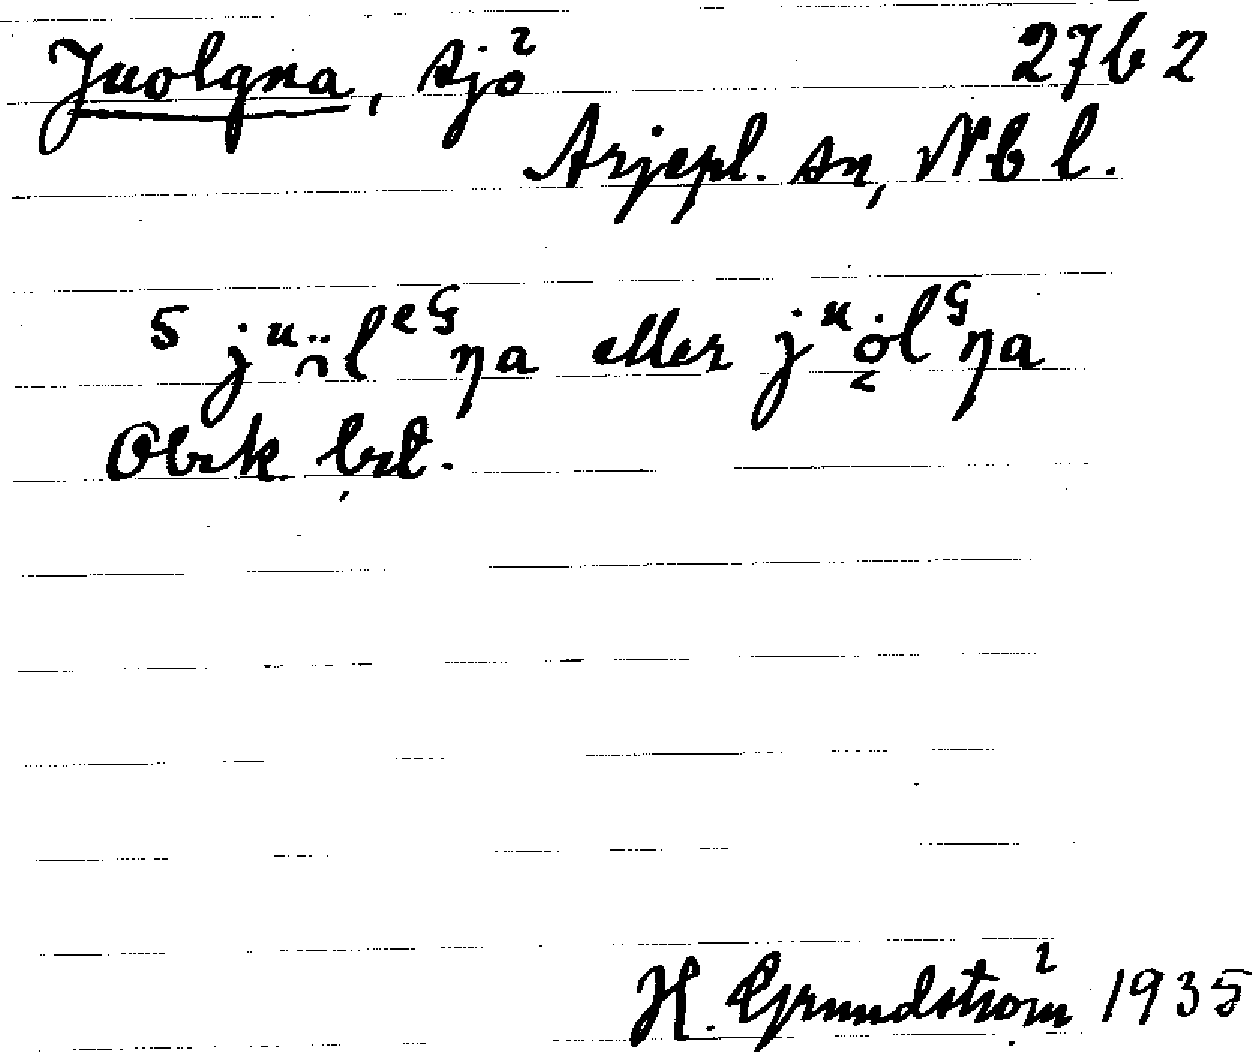 Juolgna, sjö 27b2
Arjepl. sn, Nbl.
5 jᵘöl eller jᵘȯ̜lᴳŋa
Obek
H. Grundström 1935